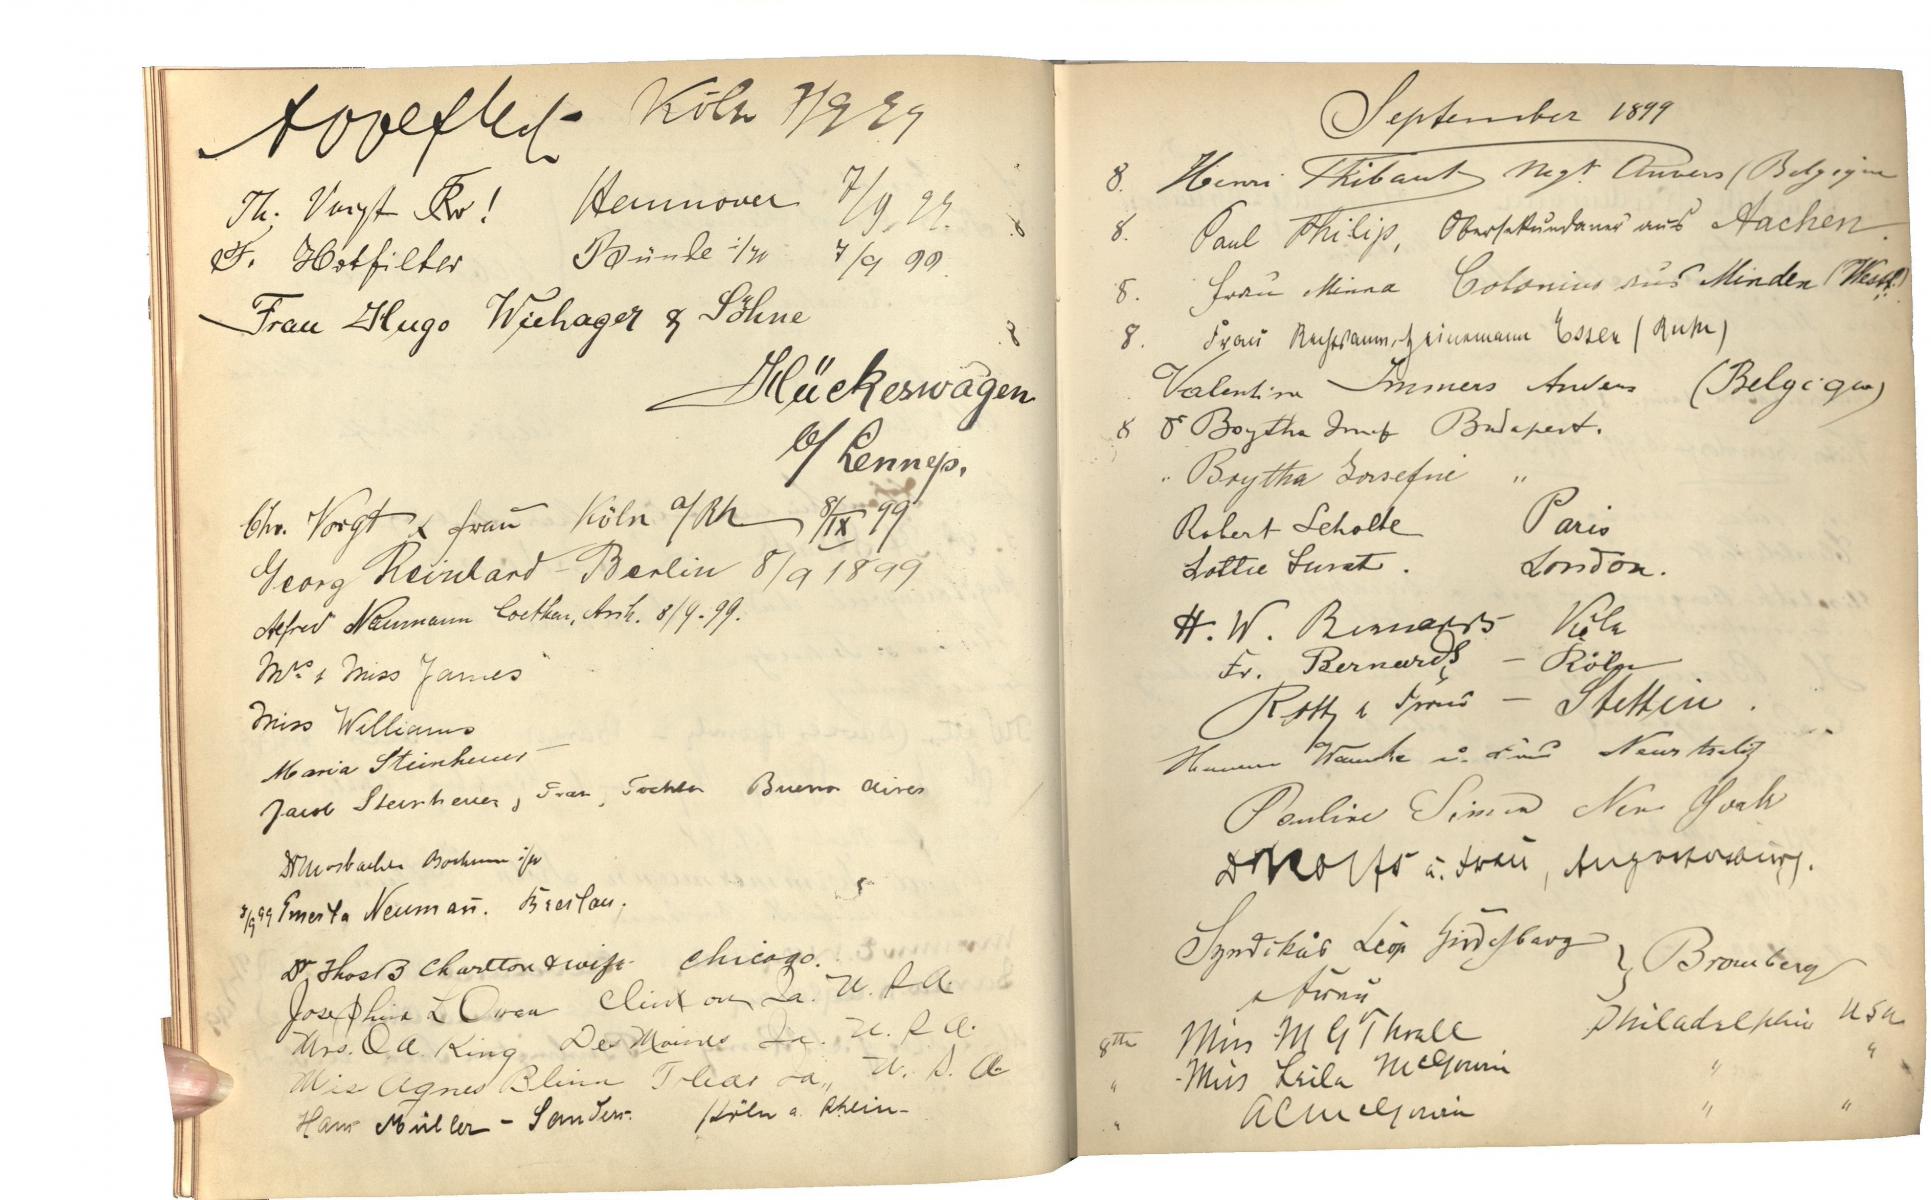 Köln 7/9 99
Th. Voigt Hannover 7/9. 99.
F. Hotfilter Bünde i/W 7/9 99.
Frau Hugo Wiehager & Söhne
8
Hückeswagen
b/ Lennep.
Chr. Voigt & Frau Köln a/Rh 8/IX 99
Georg Reinhard - Berlin 8/9 1899
Alfred Naumann Coethen, Anh. 8/9. 99.
Mrs & Miss James
Miss Williams
Maria Steinheuer
Jacob Steinheuer, Frau, Tochter Buenos Aires
Dr Mosbacher Bochum i/W
7/9 99 Neumañ. Breslau.
Dr Thos B Charlton & wife Chicago.
Josephine L Owen Clinton Ia. U. S A.
Mrs. O A. King Des Moines Ia. U. S. A.
Mis Agnes Blinn Toledo Ia,, U. S. A
Hans Müller - Köln a. Rhein-
September 1899
8. Henri Thibaut Negt. Anvers (Belgique
8. Paul Philip, Obersekundaner aus Aachen.
8. Frau Minna Colonius aus Minden (Westf.)
8. Frau Heinemann Essen (Ruhr)
Valentine Immers Anvers (Belgique)
8 Boytha Budapest.
" Boytha "
Robert Scholte Paris
Lottie London.
H. W. Bernards Köln
Fr. Bernards - Köln
& Frau - Stettin.
u. Frau Neustrelitz
Pauline Simon New York
Dr Rolfs u. Frau, Augustusburg.
Syndikus } Bromberg
& Frau
8th Miss M G Thrall Philadelphia USA
" Miss Leila McGowin " "
" A C McGowin " "